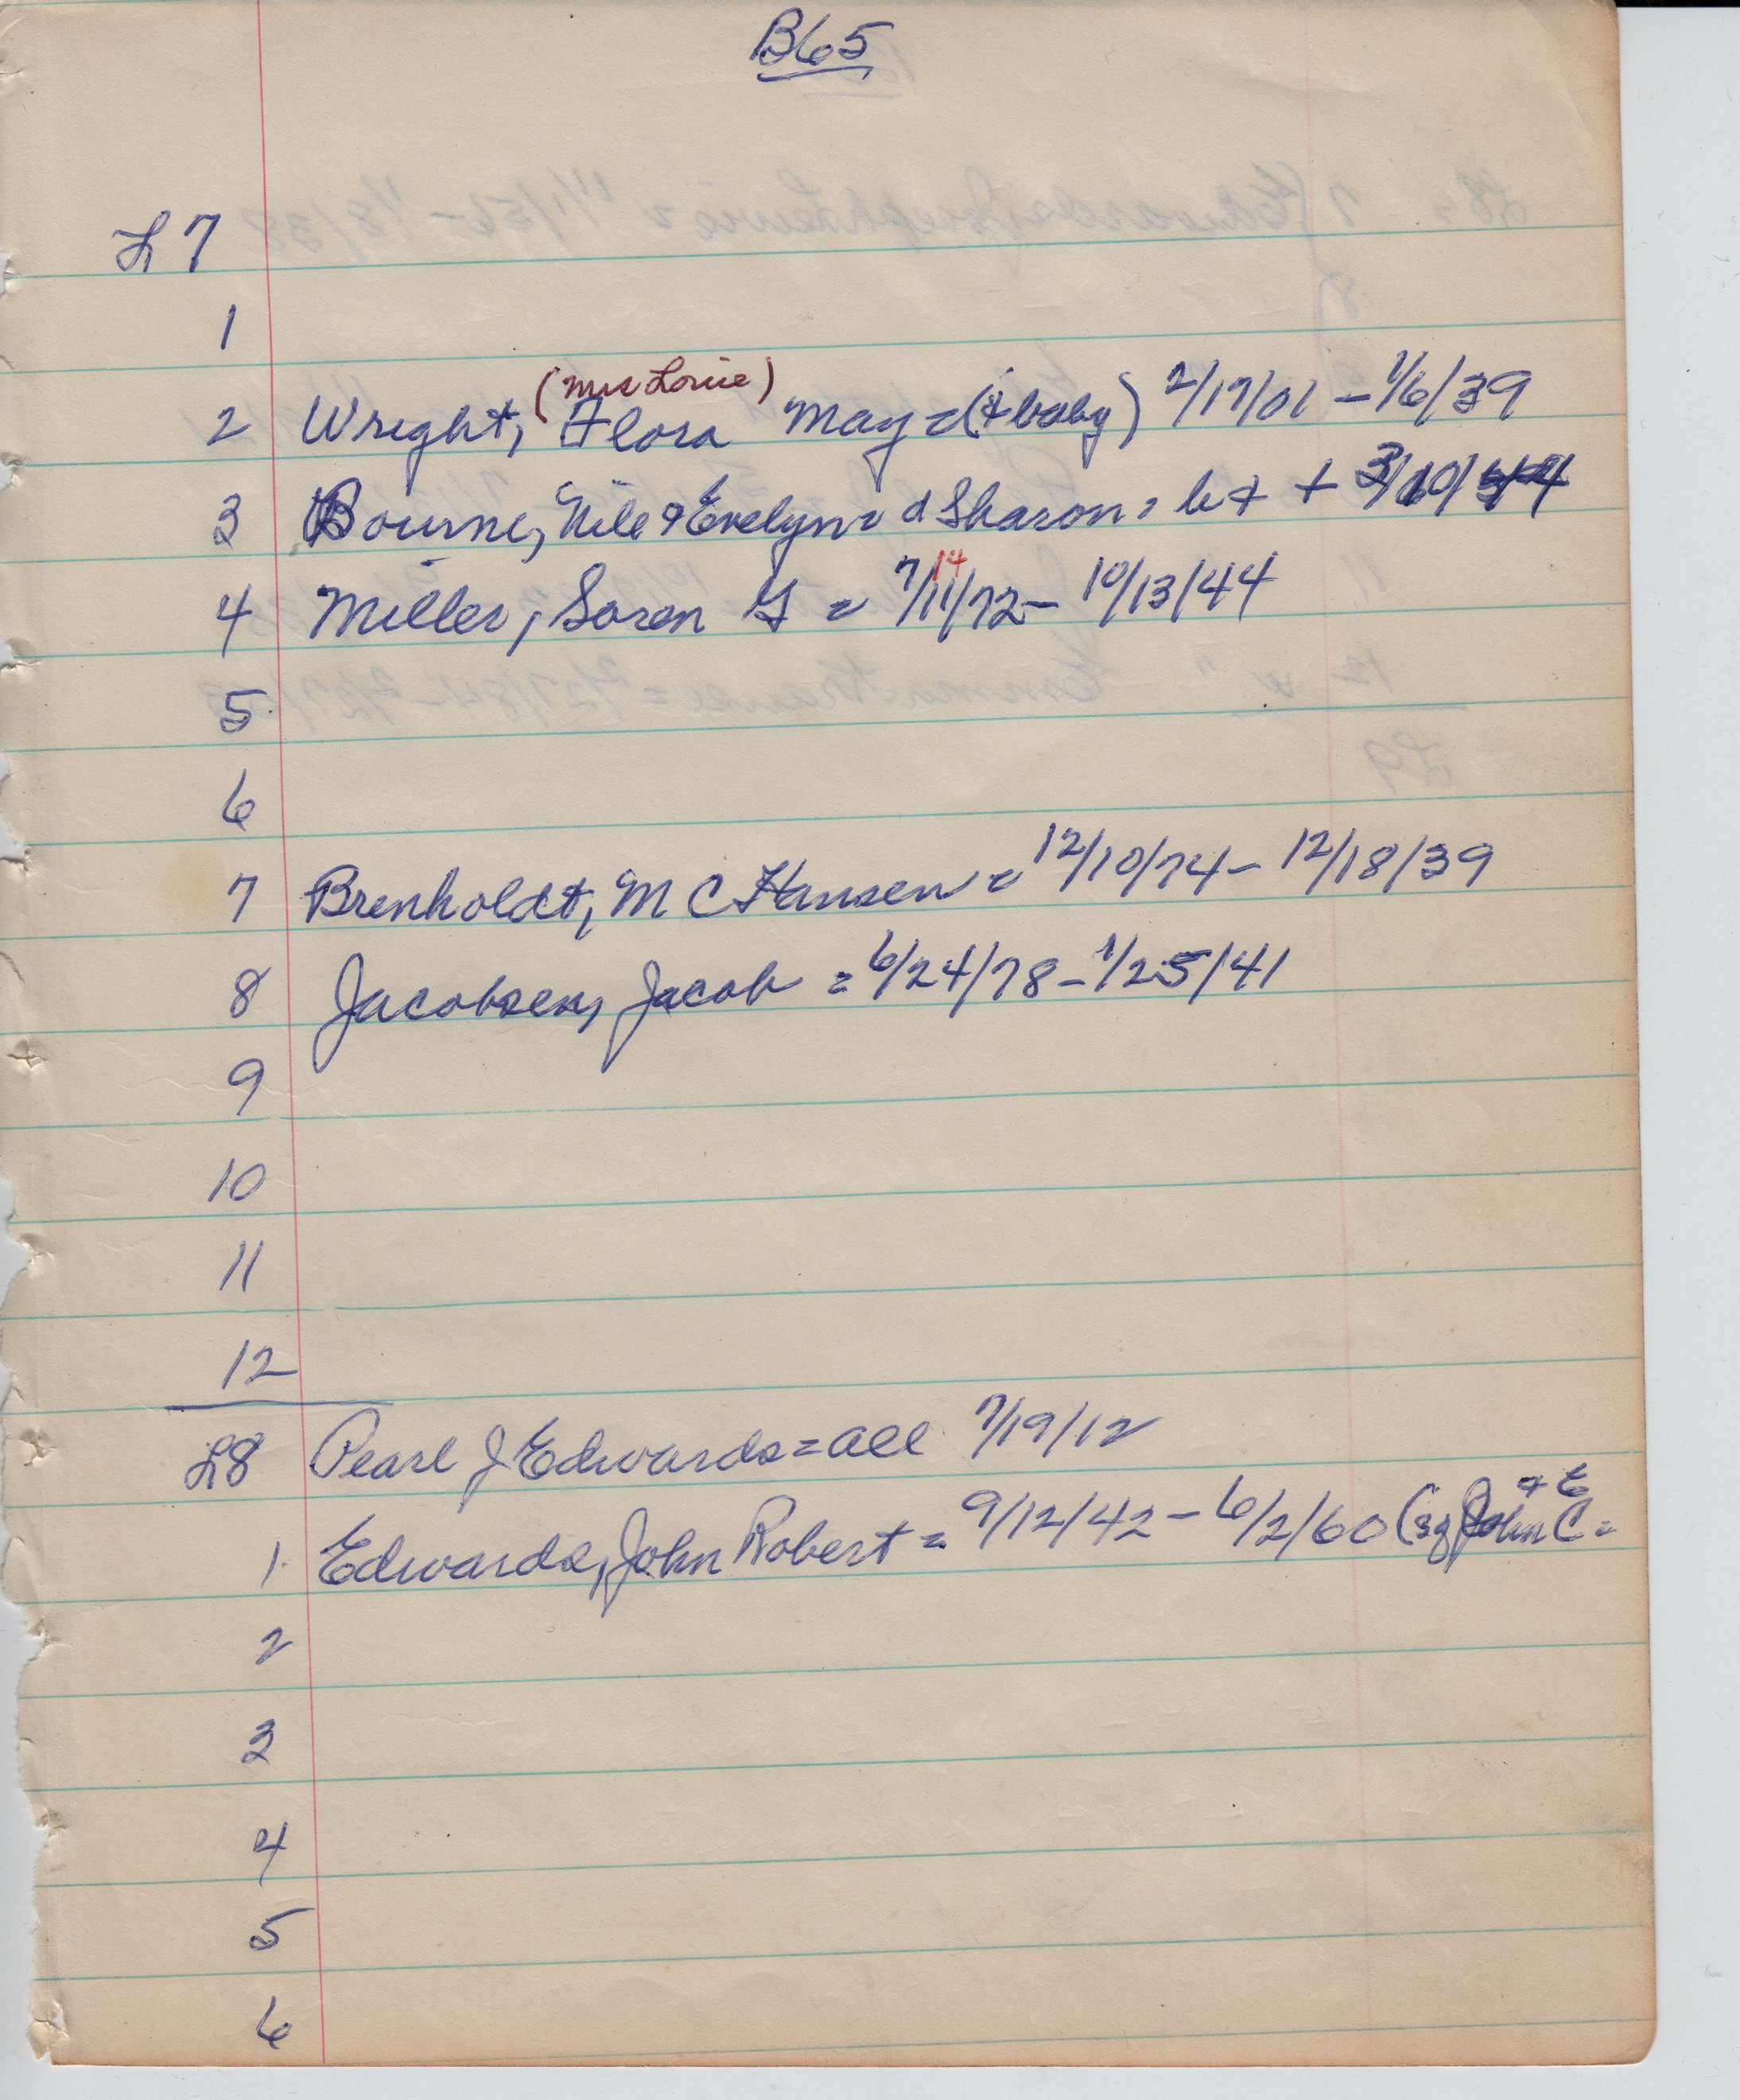 B65
L7
1
(Mrs Louie)
2 Wright, Flora May = (+ baby) 2/17/01 - 1/6/39
3 Bourne, Nile & Evelyn = d Sharon = b + + 3/10/44
4 Miller, Soren G = 7/11/72 - 10/13/44
14
5
6
7 Brenholdt, M C Hansen = 12/10/74 - 12/18/39
8 Jacobsen, Jacob = 6/24/78 - 1/25/41
9
10
11
12
L8 Pearl J Edwards = all 7/19/12
1 Edwards, John Robert = 9/12/42 - 6/2/60 (sg John C = + E
2
3
4
5
6